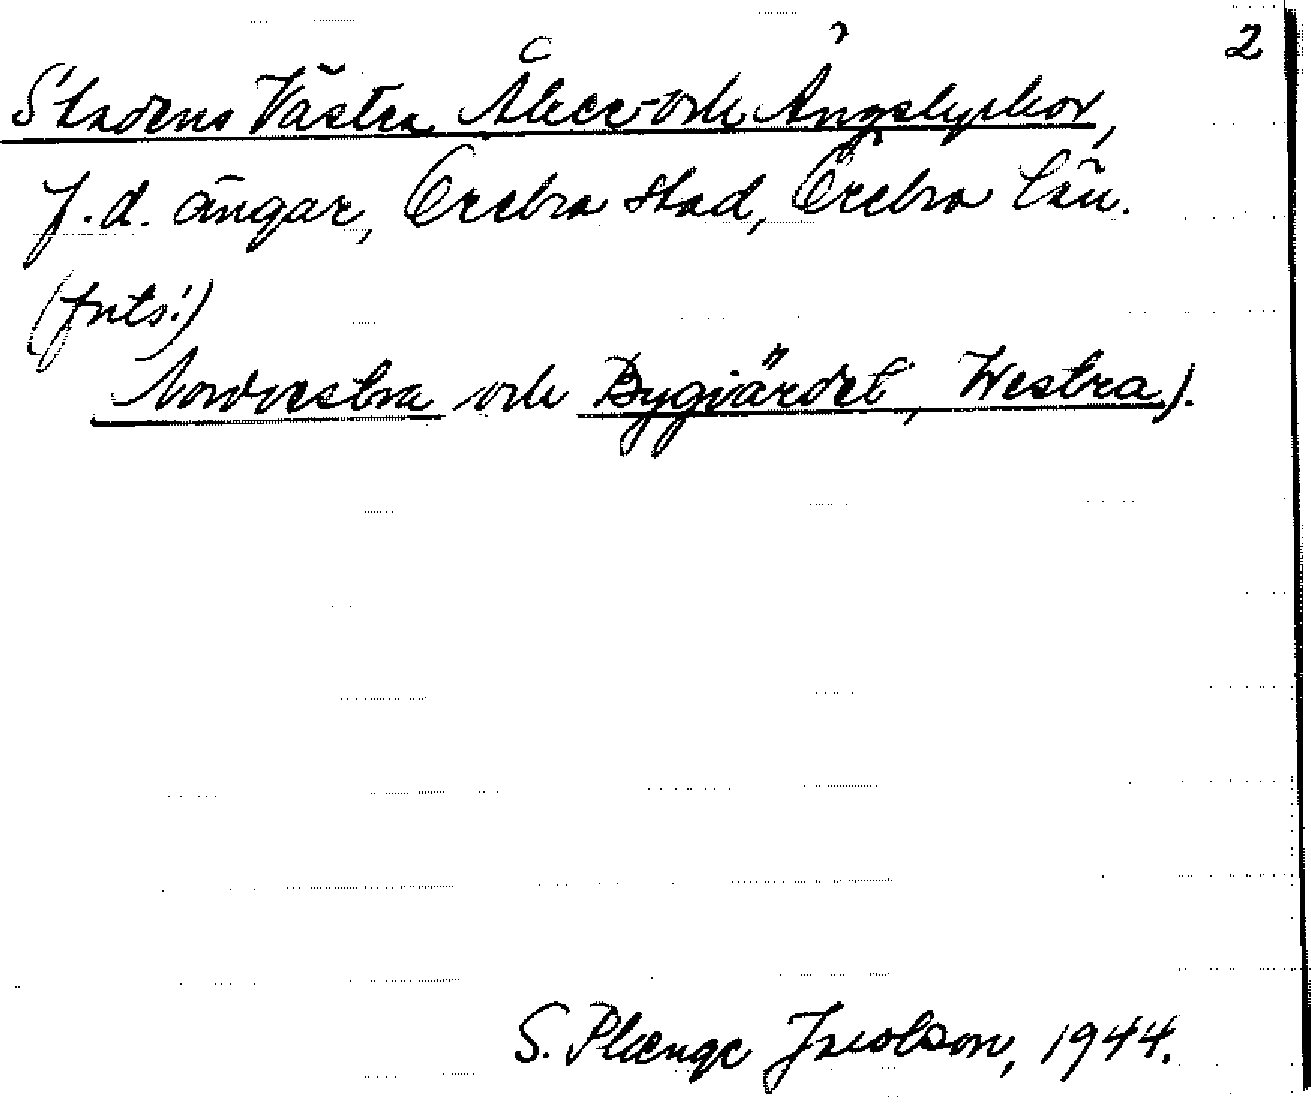 2
Stadens Västra Åker- och Ängslyckor,
f.d. ängar, Örebro stad, Örebro län.
(forts:)
Nordvestra och Bygivärdet, Westra).
S. Plænge Jacobson, 1944.